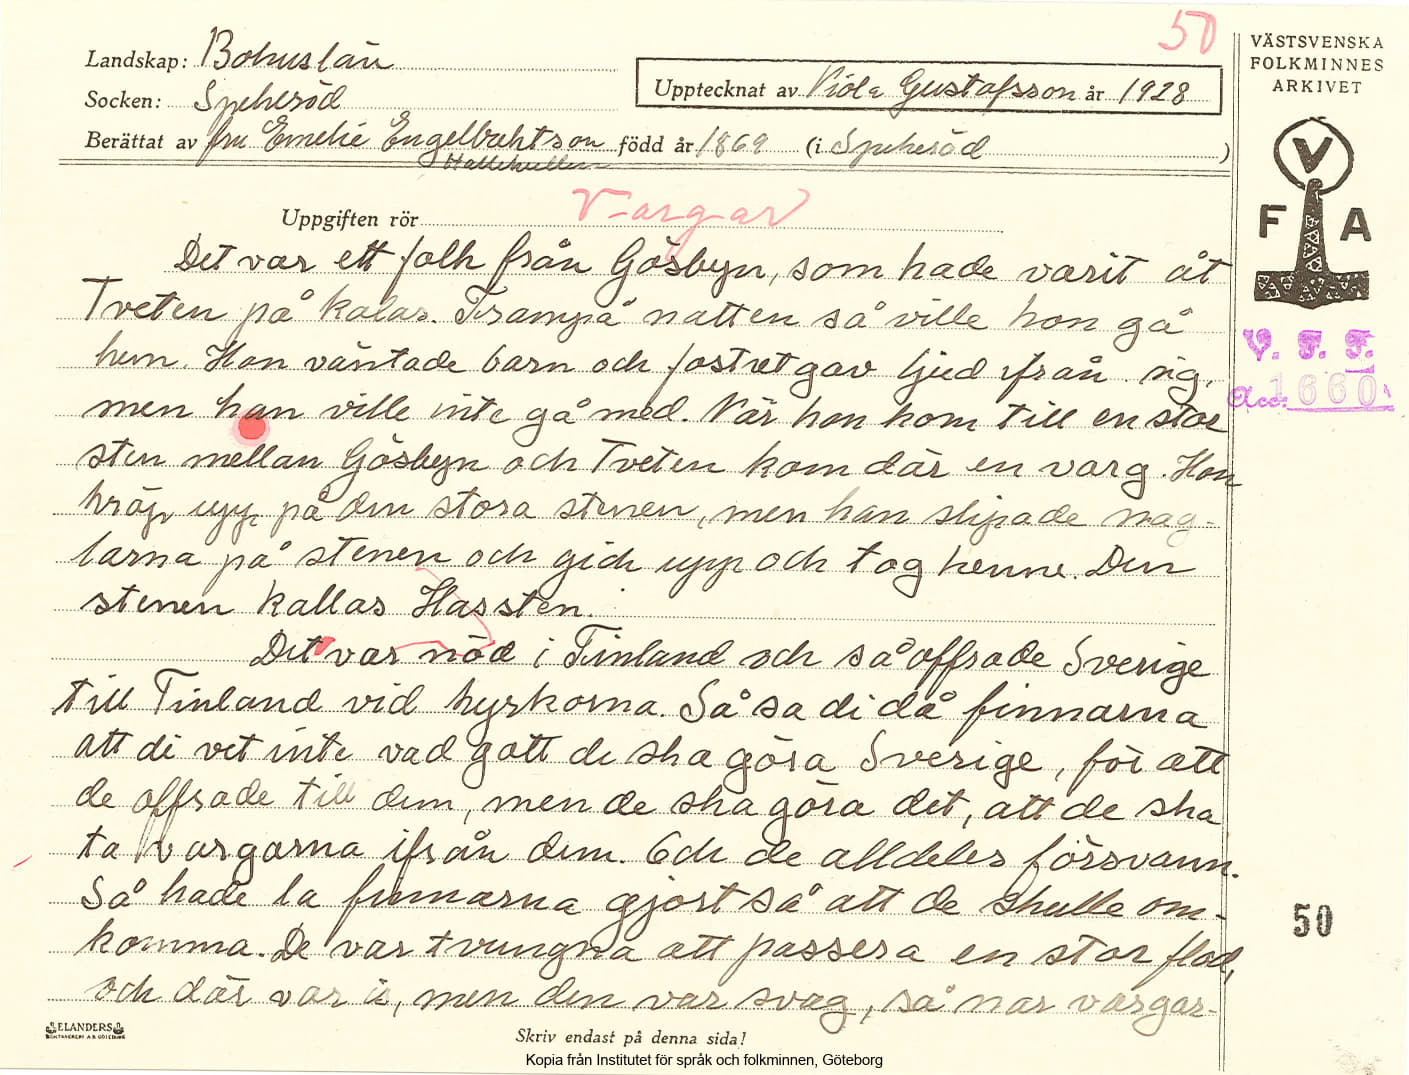 50
Landskap: Bohuslän
Socken: Spekeröd
Upptecknat av Viola Gustafsson år 1928
Berättat av fru Emelie Engelbrektson född år 1869 (i Spekeröd)
Uppgiften rör Vargar
Det var ett folk från Gösbyn, som hade varit åt
Tveten på kalas. Frampå natten så ville hon gå
hem. Hon väntade barn och fostret gav ljud ifrån sig,
men han ville inte gå med. När hon kom till en stor
sten mellan Gösbyn och Tveten kom där en varg. Hon
kröp upp på den stora stenen, men han slipade nag-
larna på stenen och gick upp och tog henne. Den
stenen kallas Hassten.
Det var nöd i Finland och så offrade Sverige
till Finland vid kyrkorna. Så sa di då finnarna
att di vet inte vad gott de ska göra Sverige, för att
de offrade till dem, men de ska göra det, att de ska
ta vargarna ifrån dem. Och de alldeles försvann.
Så hade la finnarna gjort så att de skulle om-
komma. De var tvungna att passera en stor flod,
och där var is, men den var svag, så när vargar-
ELANDERS
BOKTRYCKERI A.B. GÖTEBORG
Skriv endast på denna sida!
Kopia från Institutet för språk och folkminnen, Göteborg
VÄSTSVENSKA
FOLKMINNES
ARKIVET
V
F A
V. F. F.
Acc. 1660
50